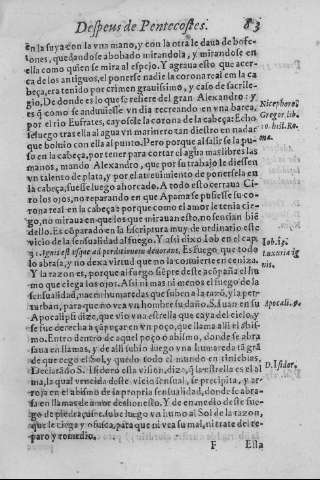 Despues de Pentecostes. 83
en la suya con la vna mano, y con la otra le daua de bofe-
tones, quedandose abobado mirandola, y mirandose en
ella como quien se mira al espejo. Y agraua esto que acer-
ca de los antiguos, el ponerse nadie la corona real en la ca
beça, era tenido por crimen grauissimo, y caso de sacrile-
gio, De donde es lo que se refiere del gran Alexandro: y
es q̃ como se anduuiesse vn dia recreando en vna barca,
por el rio Eufrates, cayosele la corona de la cabeça: Echo
se luego tras ella al agua vn marinero tan diestro en nadar
que boluio con ella al punto. Pero porque al salir se la pu-
so en la cabeça, por tener para cortar el agua mas libres las
manos, mando Alexandro, que por su trabajo le diessen
vn talento de plata, y por el atreuimiento de ponersela en
la cabeça, fuesse luego ahorcado. A todo esto cerraua Ci-
ro los ojos, no reparando en que Apama se pusiesse su co-
rona real en la cabeça: porque como el amor le tenia cie-
go, no miraua en que los que mirauan esto, no sentian bie
dello. Es cõparado en la Escriptura muy de ordinario este
vicio de la sensualidad al fuego. Y assi dixo Iob en el cap.
31. Ignis est vsque ad perditionem deuorans. Es fuego, que todo
lo abrasa, y no dexa virtud que no la conuierte en ceniza.
Y la razon es, porque al fuego siẽpre deste acõpaña el hu
mo que ciega los ojos. Assi ni mas ni menos el fuego de la
sensualidad, nacen humaredas que suben a la razõ, y la per
turban, para que no vea vn hombre su daño. S. Iuan en su
Apocalipsis dize, que vio vna estrella que caya del cielo, y
se fue derecha a çãpuçar en vn poço, que llama alli el abis-
mo. Entro dentro de aquel poço o abismo, donde se abra
saua en llamas, y de alli subio luego vna humareda tã grã
de que cegò el Sol, y quedo todo el mundo en tinieblas,
Declarãdo S. Isidoro esta vision, dize, q̃ la estrella es el al
ma, la qual vencida deste vicio sensual, se precipita, y ar-
roja en el abismo de la propria sensualidad, donde se abra-
sa en llamas de amor deshonesto. Y de en medio deste fue-
go de piedra çufre, sube luego vn humo al Sol de la razon,
que le ciega y ofusca, para que ni vea su mal, ni trate del re-
paro y remedio.
F Esta
Nicephoro,
Gregor. lib.
10. hist. Ro-
ma.
Iob. 31.
Luxuria ig
nis.
Apocali. 9.
D. Isidor.